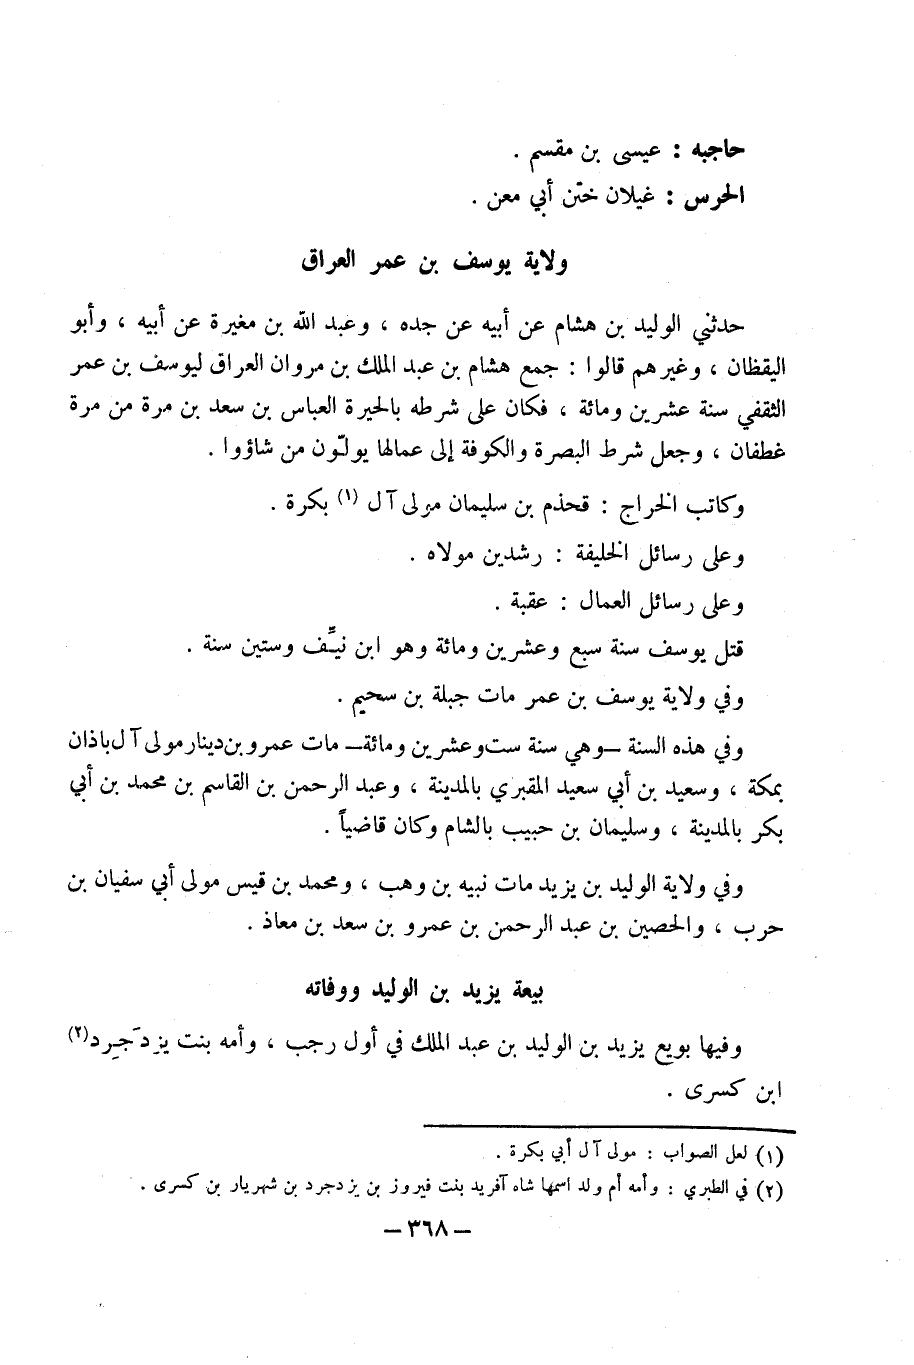 حاجبه : عيسى بن مقسم .
الحرس : غيلان ختن أبي معن .
ولاية يوسف بن عمر العراق
حدثني الوليد بن هشام عن أبيه عن جده ، وعبد الله بن مغيرة عن أبيه ، وأبو
اليقظان ، وغيرهم قالوا : جمع هشام بن عبد الملك بن مروان العراق ليوسف بن عمر
الثقفي سنة عشرين ومائة ، فكان على شرطه بالحيرة العباس بن سعد بن مرة من مرة
غطفان ، وجعل شرط البصرة والكوفة إلى عمالها يولّون من شاؤوا .
وكاتب الخراج : قحذم بن سليمان مولى آل (١) بكرة .
وعلى رسائل الخليفة : رشدين مولاه .
وعلى رسائل العمال : عقبة .
قتل يوسف سنة سبع وعشرين ومائة وهو ابن نيِّف وستين سنة .
وفي ولاية يوسف بن عمر مات جبلة بن سحيم .
وفي هذه السنة –وهي سنة ست وعشرين ومائة– مات عمرو بن دينار مولى آل باذان
بمكة ، وسعيد بن أبي سعيد المقبري بالمدينة ، وعبد الرحمن بن القاسم بن محمد بن أبي
بكر بالمدينة ، وسليمان بن حبيب بالشام وكان قاضياً .
وفي ولاية الوليد بن يزيد مات نبيه بن وهب ، ومحمد بن قيس مولى أبي سفيان بن
حرب ، والحصين بن عبد الرحمن بن عمرو بن سعد بن معاذ .
بيعة يزيد بن الوليد ووفاته
وفيها بويع يزيد بن الوليد بن عبد الملك في أول رجب ، وأمه بنت يزدَجِرد(٢)
ابن كسرى .
(١) لعل الصواب : مولى آل أبي بكرة .
(٢) في الطبري : وأمه أم ولد اسمها شاه آفريد بنت فيروز بن يزدجرد بن شهريار بن كسرى .
– ٣٦٨ –